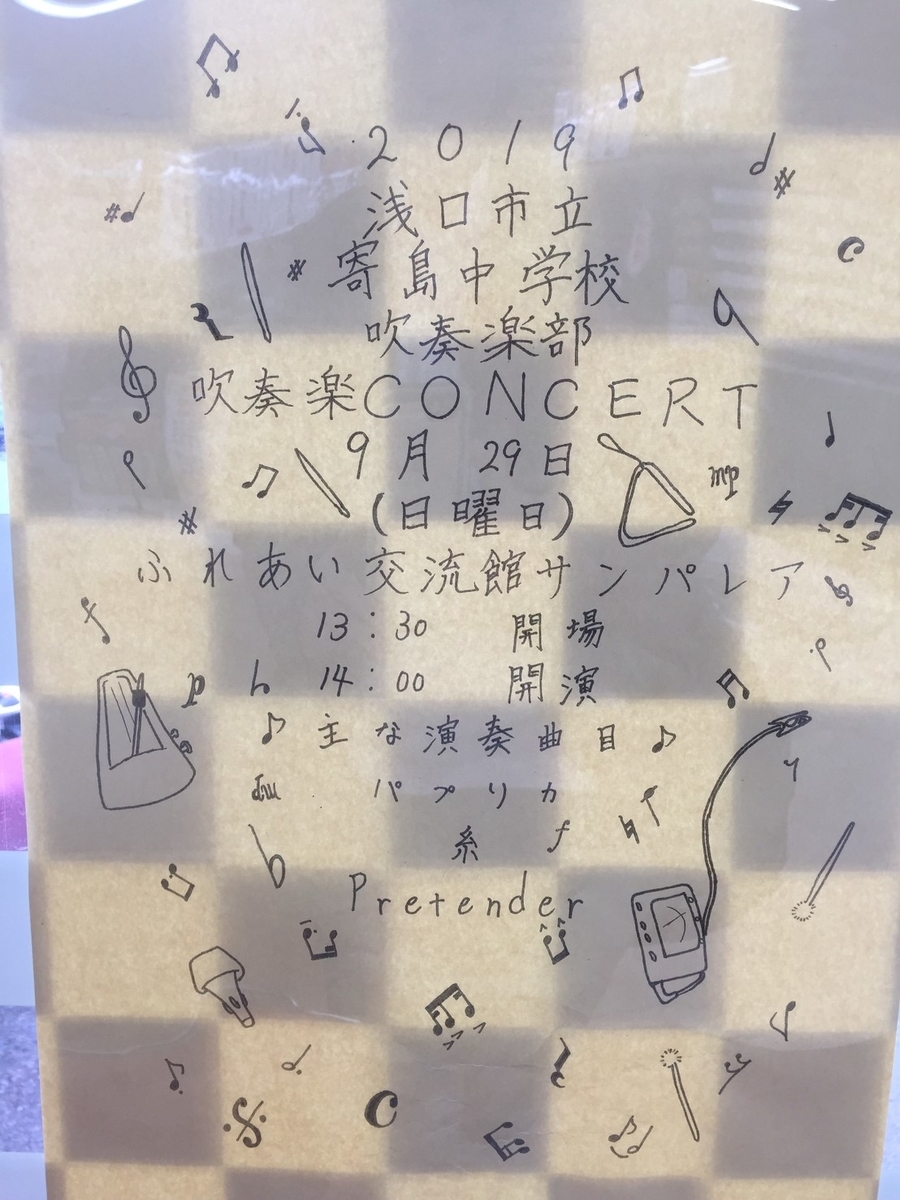 2019
浅口市立
寄島中学校
吹奏楽部
吹奏楽CONCERT
9月 29日
(日曜日)
ふれあい交流館サンパレア
13:30 開場
14:00 開演
♪主な演奏曲目♪
パプリカ
糸
Pretender
mp
p
dim
f